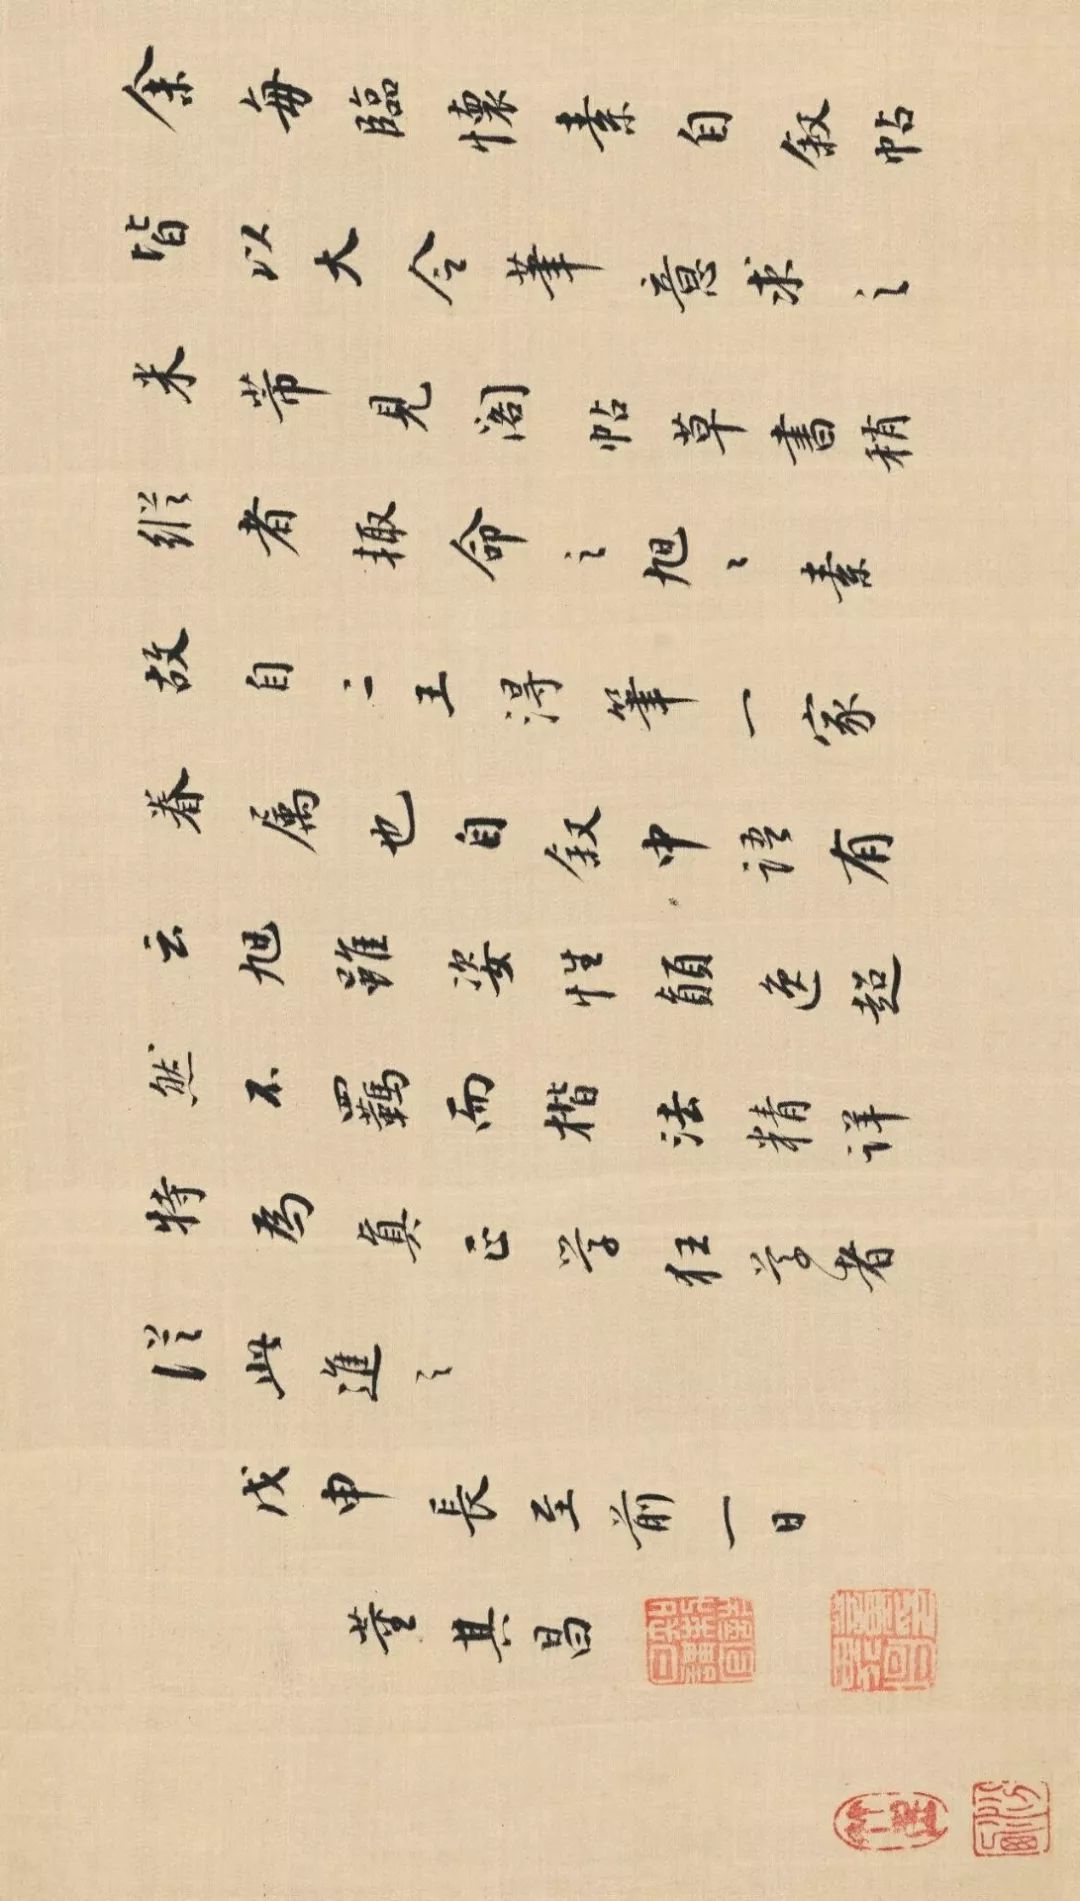 余每臨懷素自敘帖
皆以大令筆意求之
米芾見閣帖草書稍
縱者輒命之旭旭素
故自二王得筆一家
眷屬也自敘中語有
云旭雖姿性顛逸超
然不羈而楷法精詳
特為真正学狂学者
從此進之
戊申長至前一日
董其昌